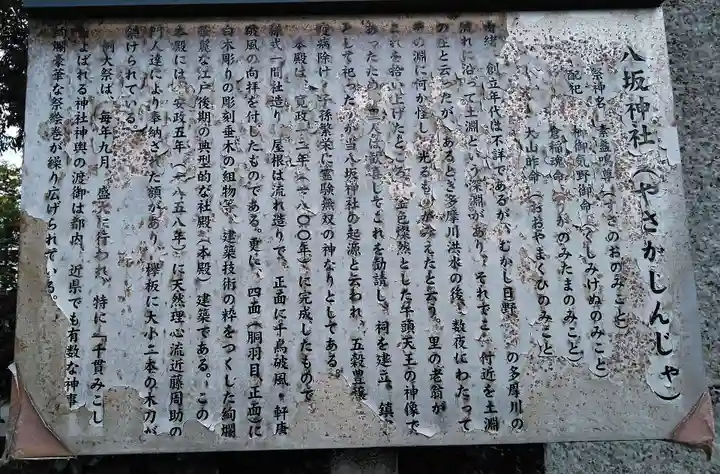 八坂神社(やさかじんじゃ)
祭神名 素盞鳴尊(すさのおのみこと)
配祀 櫛御気野命(くしみけぬのみこと)
倉稲魂命(うかのみたまのみこと)
大山昨命(おおやまくひのみこと)
由緒 創立年代は不詳であるが、むかし日野の多摩川の
流れに沿って土淵という深淵があり、それでこの付近を土淵
の庄と云ったが、あるとき多摩川洪水の後、数夜にわたって
の淵に何か怪しく光るものがみえたと云う。里の老翁が
これを拾い上げたところ、金色燦然とした牛頭天王の神像で
あったため、里人は歓喜してこれを勧請し、祠を建立、鎮
として祀ったのが当八坂神社の起源と云われ、五穀豊穣
疫病除け、子孫繁栄に霊験無双の神なりとしてある。
本殿は、寛政十二年(一八〇〇年)に完成したもので
様式一間社造り、屋根は流れ造りで、正面に千鳥破風、軒唐
破風の向拝を付したものである。更に、四面(胴羽目、正面)に
白木彫りの彫刻垂木の組物等、建築技術の粋をつくした絢爛
麗な江戸後期の典型的な社殿(本殿)建築である。この
本殿には、安政五年(一八五八年)に天然理心流近藤周助の
門人達により奉納された額があり、欅板に大小二本の木刀が
掛けられている。
例大祭は、毎年九月、盛大に行われ、特に「千貫みこし
とよばれる神社神輿の渡御は都内、近県でも有数な神事
絢爛豪華な祭絵巻が繰り広げられている。